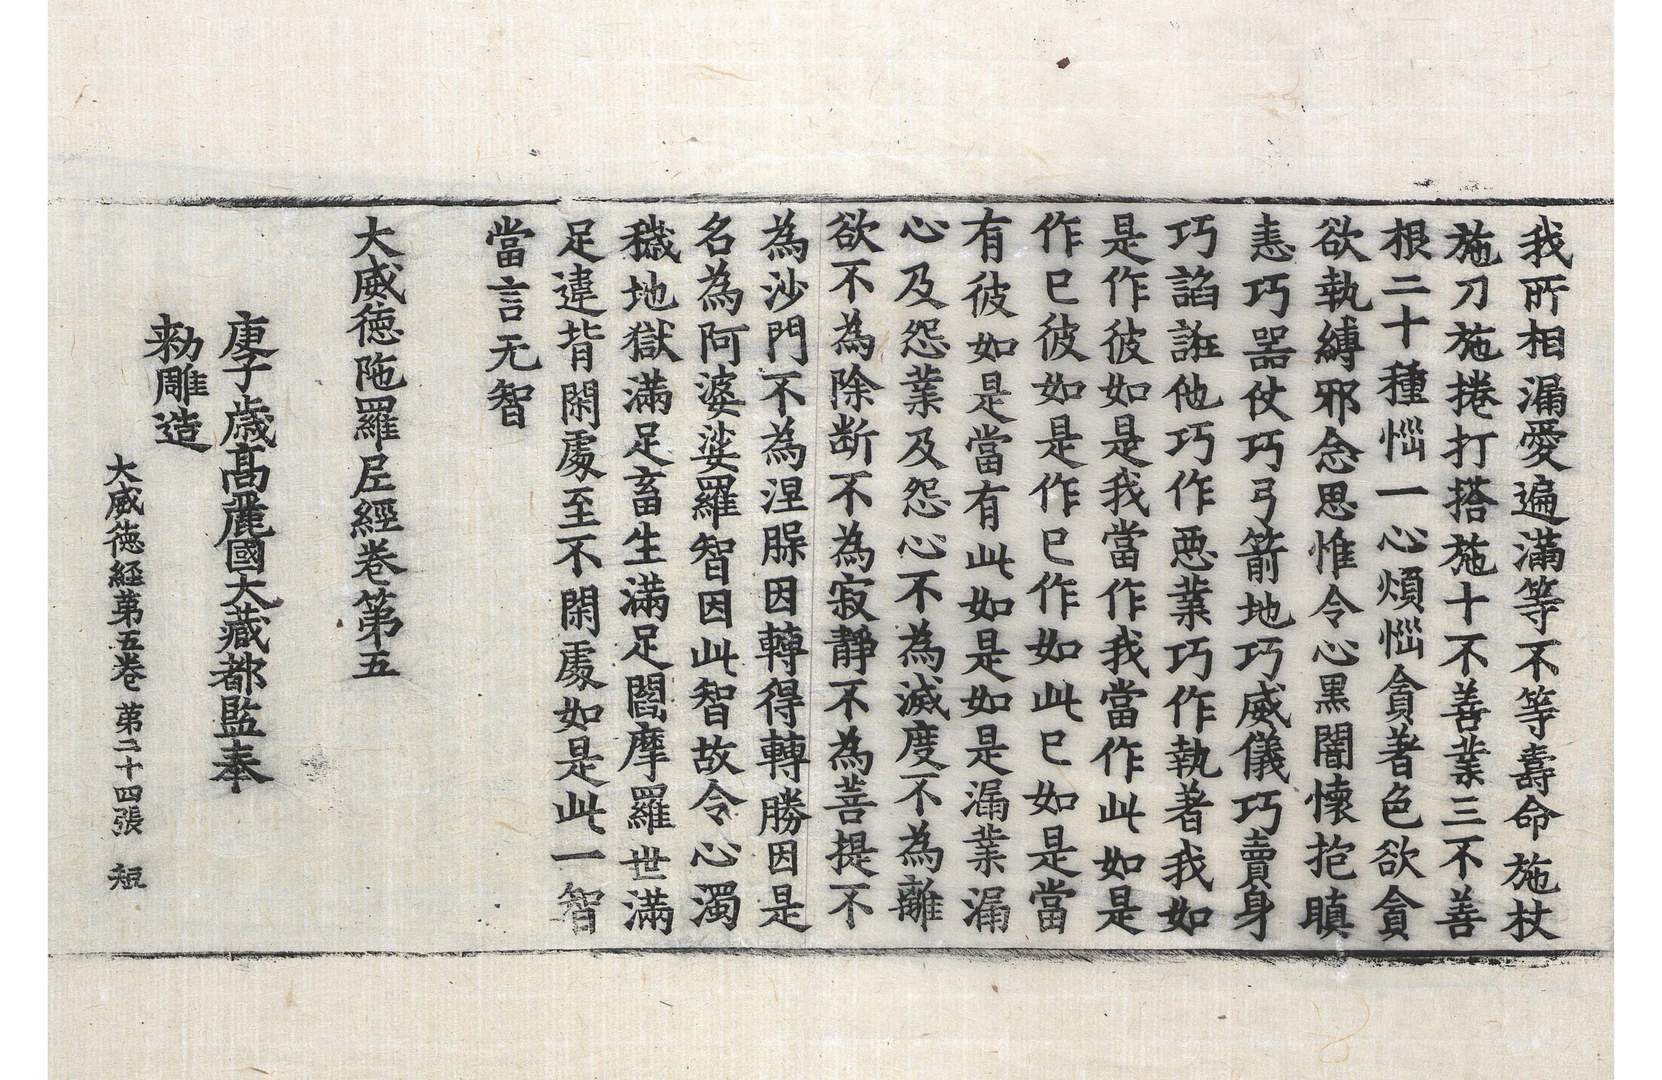 我所相漏愛遍滿等不等壽命施杖
施刀施捲打搭施十不善業三不善
根二十種惱一心煩惱貪著色欲貪
欲執縛邪念思惟令心黑闇懷抱瞋
恚巧器仗巧弓箭地巧威儀巧賣身
巧諂誑他巧作惡業巧作執著我如
是作彼如是我當作我當作此如是
作已彼如是作已作如此已如是當
有彼如是當有此如是如是漏業漏
心及怨業及怨心不為滅度不為離
欲不為除断不為寂靜不為菩提不
為沙門不為涅槃因轉得轉勝因是
名為阿婆娑羅智因此智故令心濁
穢地獄滿足畜生滿足閻摩羅世滿
足違背閑處至不閑處如是此一智
當言无智
大威德陁羅尼經卷第五
庚子歳高麗國大藏都監奉
勑雕造
大威德経第五卷 第二十四張 短